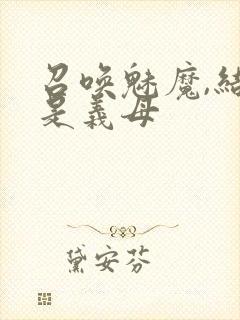 召唤魅魔,结
是義母
黛安芬